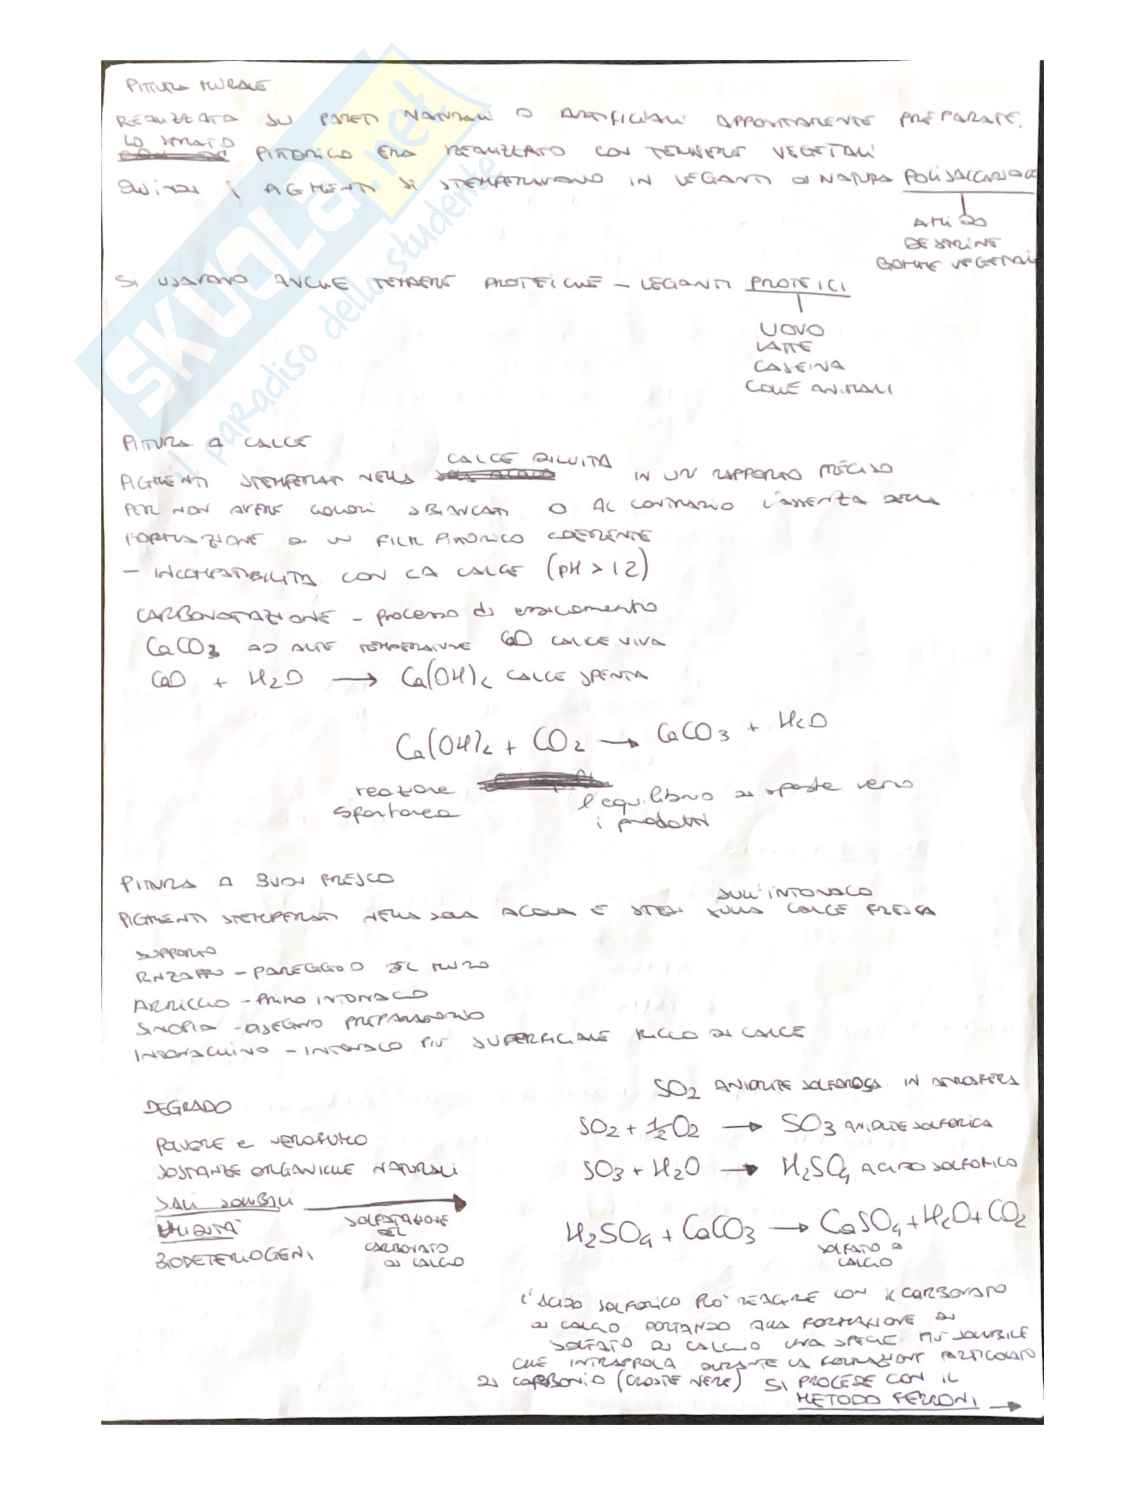 PITTURA MURALE
REALIZZATA SU PARETI NATURALI O ARTIFICIALI APPOSITAMENTE PREPARATE.
LO STRATO PITTORICO ERA REALIZZATO CON TEMPERE VEGETALI
QUINDI I PIGMENTI SI STEMPERAVANO IN LEGANTI DI NATURA POLISACCARIDE
AMIDO
DESTRINE
GOMME VEGETALI
SI USAVANO ANCHE TEMPERE PROTEICHE - LEGANTI PROTEICI
UOVO
LATTE
CASEINA
COLLE ANIMALI
PITTURA A CALCE
PIGMENTI STEMPERATI NELLA CALCE DILUITA IN UN RAPPORTO PRECISO
PER NON AVERE COLORI SBIANCATI O AL CONTRARIO L'ASSENZA DELLA
FORMAZIONE DI UN FILM PITTORICO COERENTE
- INCOMPATIBILITA CON LA CALCE (PH > 12)
CARBONATAZIONE - processo di essiccamento
CaCO3 AD ALTE TEMPERATURE CaO CALCE VIVA
CaO + H2O → Ca(OH)2 CALCE SPENTA
Ca(OH)2 + CO2 → CaCO3 + H2O
reazione spontanea
l'equilibrio si sposta verso i prodotti
PITTURA A BUON FRESCO
SULL'INTONACO
PIGMENTI STEMPERATI NELLA SOLA ACQUA E STESI SULLA CALCE FRESCA
SUPPORTO
RINZAFFO - PAREGGIO DEL MURO
ARRICCIO - PRIMO INTONACO
SINOPIA - DISEGNO PREPARATORIO
INTONACHINO - INTONACO PIÙ SUPERFICIALE RICCO DI CALCE
DEGRADO
POLVERE E NEROFUMO
SOSTANZE ORGANICHE NATURALI
SALI SOLUBILI
UMIDITÀ
BIODETERIOGENI
SOLFATAZIONE
DEL
CARBONATO
DI CALCIO
SO2 ANIDRIDE SOLFOROSA IN ATMOSFERA
SO2 + ½O2 → SO3 ANIDRIDE SOLFORICA
SO3 + H2O → H2SO4 ACIDO SOLFORICO
H2SO4 + CaCO3 → CaSO4 + H2O + CO2
SOLFATO DI
CALCIO
L'ACIDO SOLFORICO PUO' REAGIRE CON IL CARBONATO
DI CALCIO PORTANDO ALLA FORMAZIONE DI
SOLFATO DI CALCIO UNA SPECIE PIÙ SOLUBILE
CHE INTRAPPOLA DURANTE LA FORMAZIONE PARTICOLATO
DI CARBONIO (CROSTE NERE) SI PROCEDE CON IL
METODO FERRONI →
SKUOLA.net
il paradiso dello studente